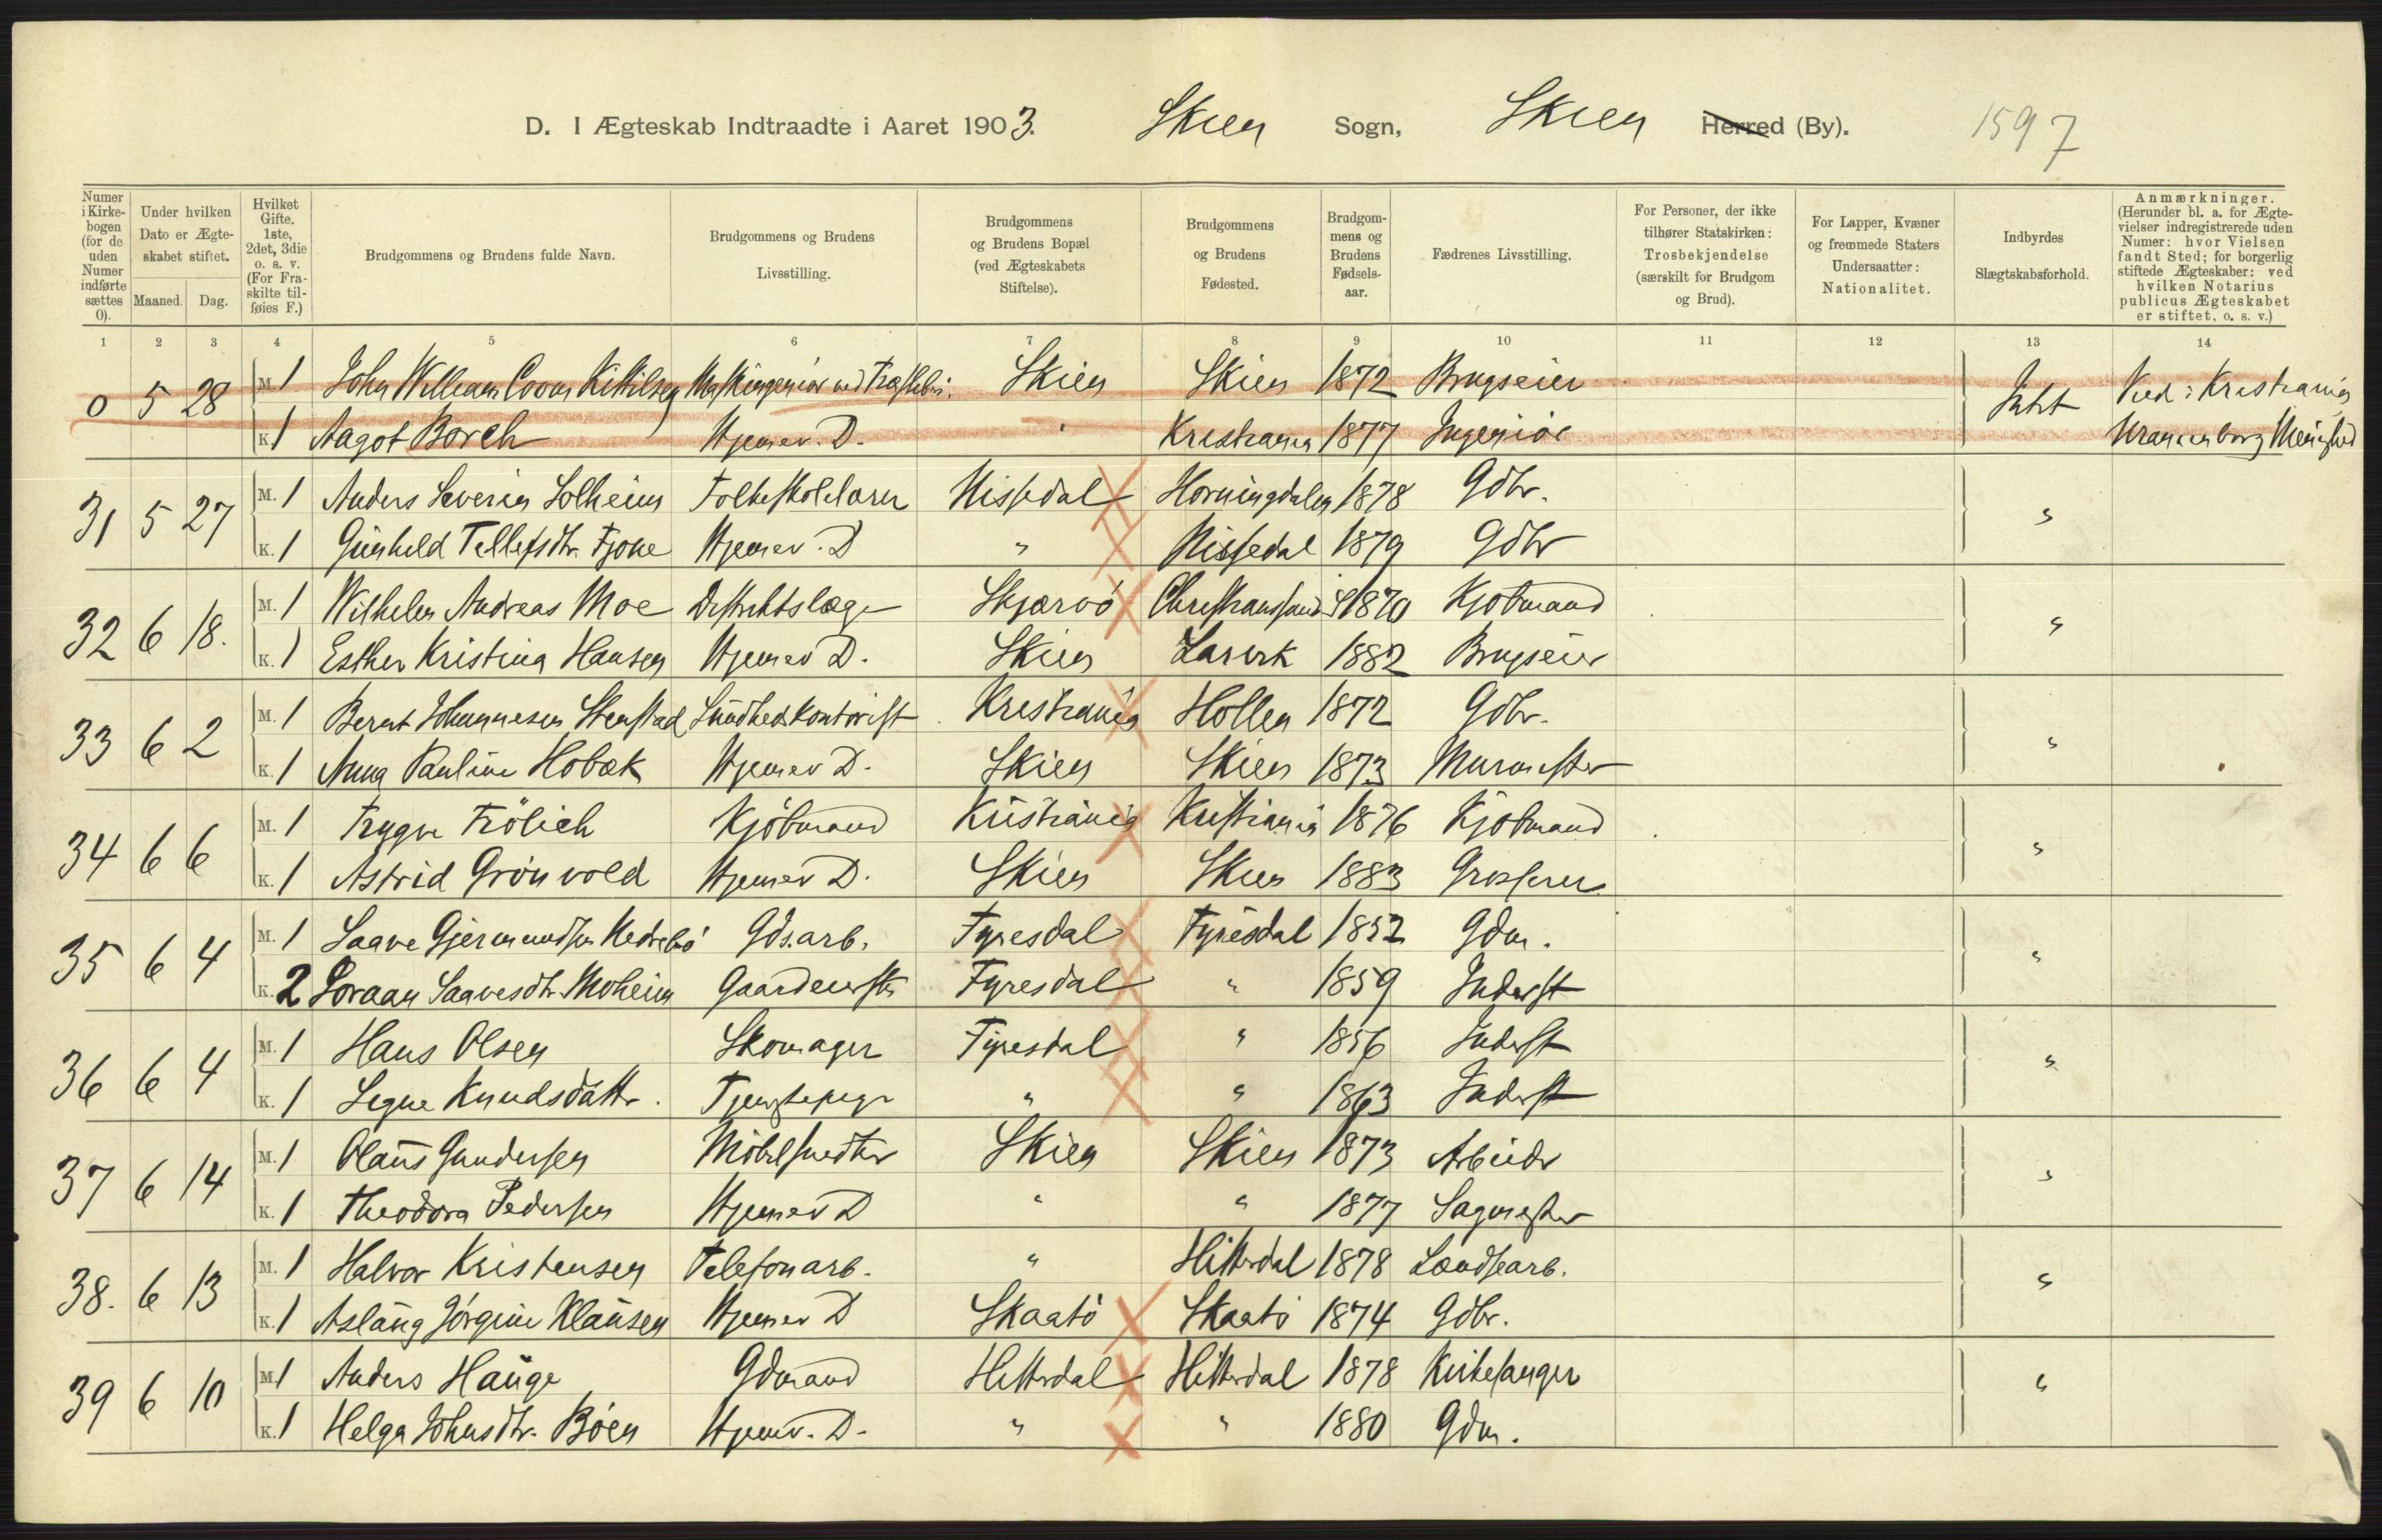 D. I Ægteskab Indtraadte i Aaret 1903. Skien Sogn, Skien Herred (By). 1597
Numer i Kirkebogen (for de uden Numer indførte sættes 0).
Under hvilken Dato er Ægteskabet stiftet.
Maaned. Dag.
Hvilket Gifte. 1ste, 2det, 3die o. s. v. (For Fraskilte tilføies F.)
Brudgommens og Brudens fulde Navn.
Brudgommens og Brudens Livsstilling.
Brudgommens og Brudens Bopæl (ved Ægteskabets Stiftelse).
Brudgommens og Brudens Fødested.
Brudgommens og Brudens Fødselsaar.
Fædrenes Livsstilling.
For Personer, der ikke tilhører Statskirken: Trosbekjendelse (særskilt for Brudgom og Brud).
For Lapper, Kvæner og fremmede Staters Undersaatter: Nationalitet.
Indbyrdes Slægtskabsforhold.
Anmærkninger. (Herunder bl. a. for Ægtevielser indregistrerede uden Numer: hvor Vielsen fandt Sted; for borgerlig stiftede Ægteskaber: ved hvilken Notarius publicus Ægteskabet er stiftet, o. s. v.)
1 2 3 4 5 6 7 8 9 10 11 12 13 14
0 5 28 M 1 John William Coom Kittilsen Skien Skien 1872 Brugseier Intet Vied: Kristiania
K 1 Aagot Borch Hjemev. D. " Kristiania 1877 Ingeniør
31 5 27 M. 1 Anders Severin Solheim Folkeskolelærer Nissedal Horningdalen 1878 Gdbr. "
K. 1 Gunhild Tellefsdtr. Fjone Hjemev. D " Nissedal 1879 Gdbr
32 6 18. M. 1 Wilhelm Andreas Moe Distriktslæge Skjærvö Christianssand S 1870 Kjøbmand "
K. 1 Esther Kristina Hansen Hjemev D. Skien Larvik 1882 Brugseier
33 6 2 M. 1 Bernt Johannesen Stenstad Sundhedskontorist Kristiania Hollen 1872 Gdbr. "
K. 1 Anna Pauline Hobæk Hjemev D. Skien Skien 1873 Murmester
34 6 6 M. 1 Trygve Frölich Kjöbmand Kristiania Kristiania 1876 Kjøbmand "
K. 1 Astrid Grönvold Hjemev D. Skien Skien 1883 Grosserer
35 6 4 M. 1 Saave Gjermundsen Gds.arb. Fyresdal Fyresdal 1852 Gdm. "
K. 2 Saavesdtr. Moheim Fyresdal " 1859 Inderst
36 6 4 M. 1 Hans Olsen Skomager Fyresdal " 1856 Inderst "
K. 1 Signe Knudsdattr. Tjenstepige " " 1863 Inderst
37 6 14 M. 1 Olaus Gundersen Möbelsnedker Skien Skien 1873 Arbeider "
K. 1 Theodora Pedersen Hjemev D " " 1877 Sagmester
38. 6 13 M. 1 Halvor Kristensen Telefonarb. " Hitterdal 1878 Landsearb. "
K. 1 Aslaug Jörgine Klausen Hjemev D Skaatö Skaatö 1874 Gdbr.
39 6 10 M 1 Anders Hauge Gdmand Hitterdal Hitterdal 1878 Kirkesanger "
K. 1 Helga Johnsdtr. Böen Hjemv. D. " " 1880 Gdm.